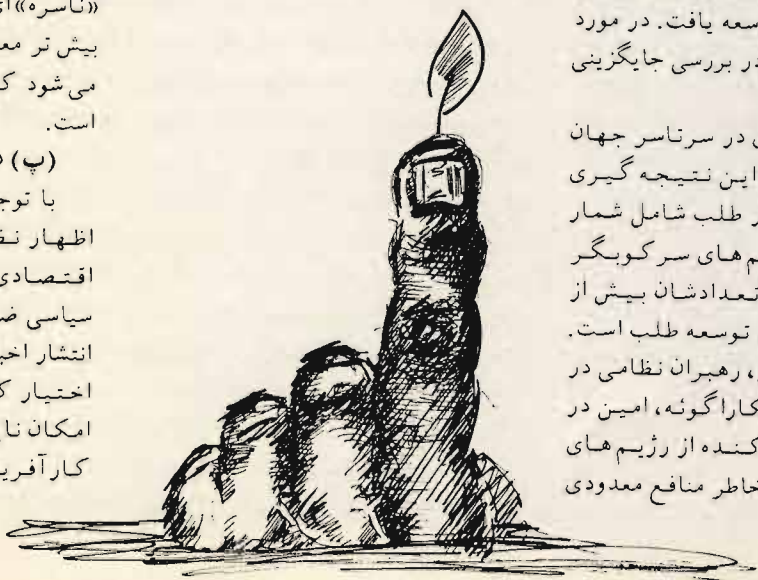 سعه یافت. در مورد
در بررسی جایگزینی
ی در سرتاسر جهان
این نتیجه گیری
ر طلب شامل شمار
م های سرکوبگر
تعدادشان بیش از
توسعه طلب است.
، رهبران نظامی در
کاراگوئه، امین در
کننده از رژیم های
خاطر منافع معدودی
«ناسره» ای
بیش تر مع
می شود ک
است.
(پ) د
با توج
اظهار نظ
اقتصادی
سیاسی ض
انتشار اخب
اختیار ک
امکان نا
کارآفری